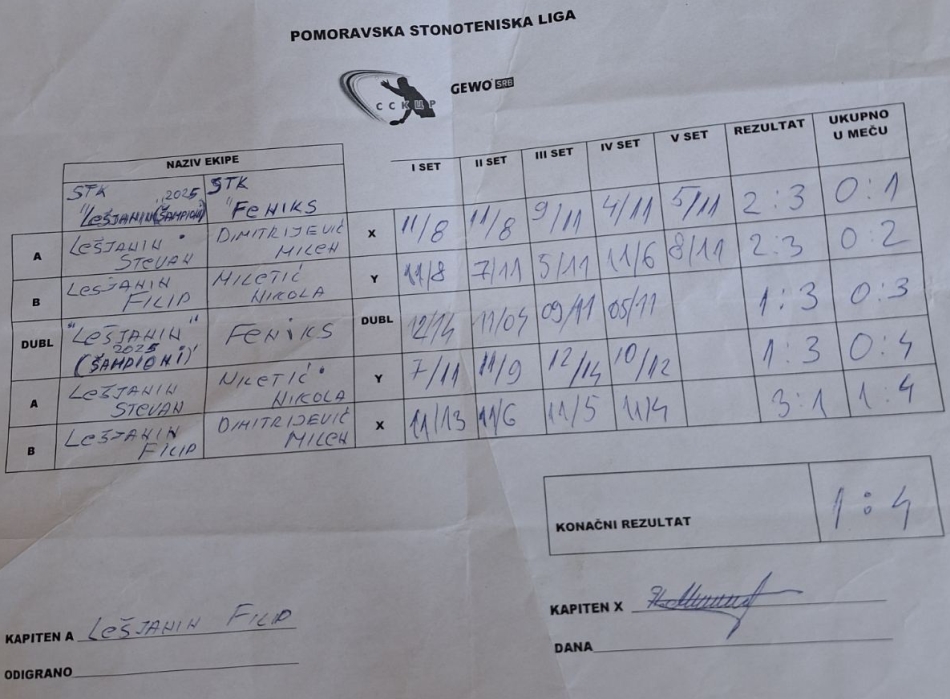 POMORAVSKA STONOTENISKA LIGA
ССКЦР GEWO SRB
NAZIV EKIPE I SET II SET III SET IV SET V SET REZULTAT UKUPNO U MEČU
STK "LEŠJANIN" 2025 (ŠAMPIONI) STK "FENIKS
A LEŠJANIN STEVAN DIMITRIJEVIĆ MILEN X 11/8 11/8 9/11 4/11 5/11 2:3 0:1
B LEŠJANIN FILIP MILETIĆ NIKOLA Y 11/8 7/11 5/11 11/6 8/11 2:3 0:2
DUBL "LEŠJANIN" 2025 (ŠAMPIONI) FENIKS DUBL 12/14 11/04 09/11 05/11 1:3 0:3
A LEŠJANIN STEVAN MILETIĆ NIKOLA Y 7/11 11/9 12/14 10/12 1:3 0:4
B LEŠJANIN FILIP DIMITRIJEVIĆ MILEN X 11/13 11/6 11/5 11/4 3:1 1:4
KONAČNI REZULTAT 1:4
KAPITEN A LEŠJANIN FILIP KAPITEN X
ODIGRANO DANA